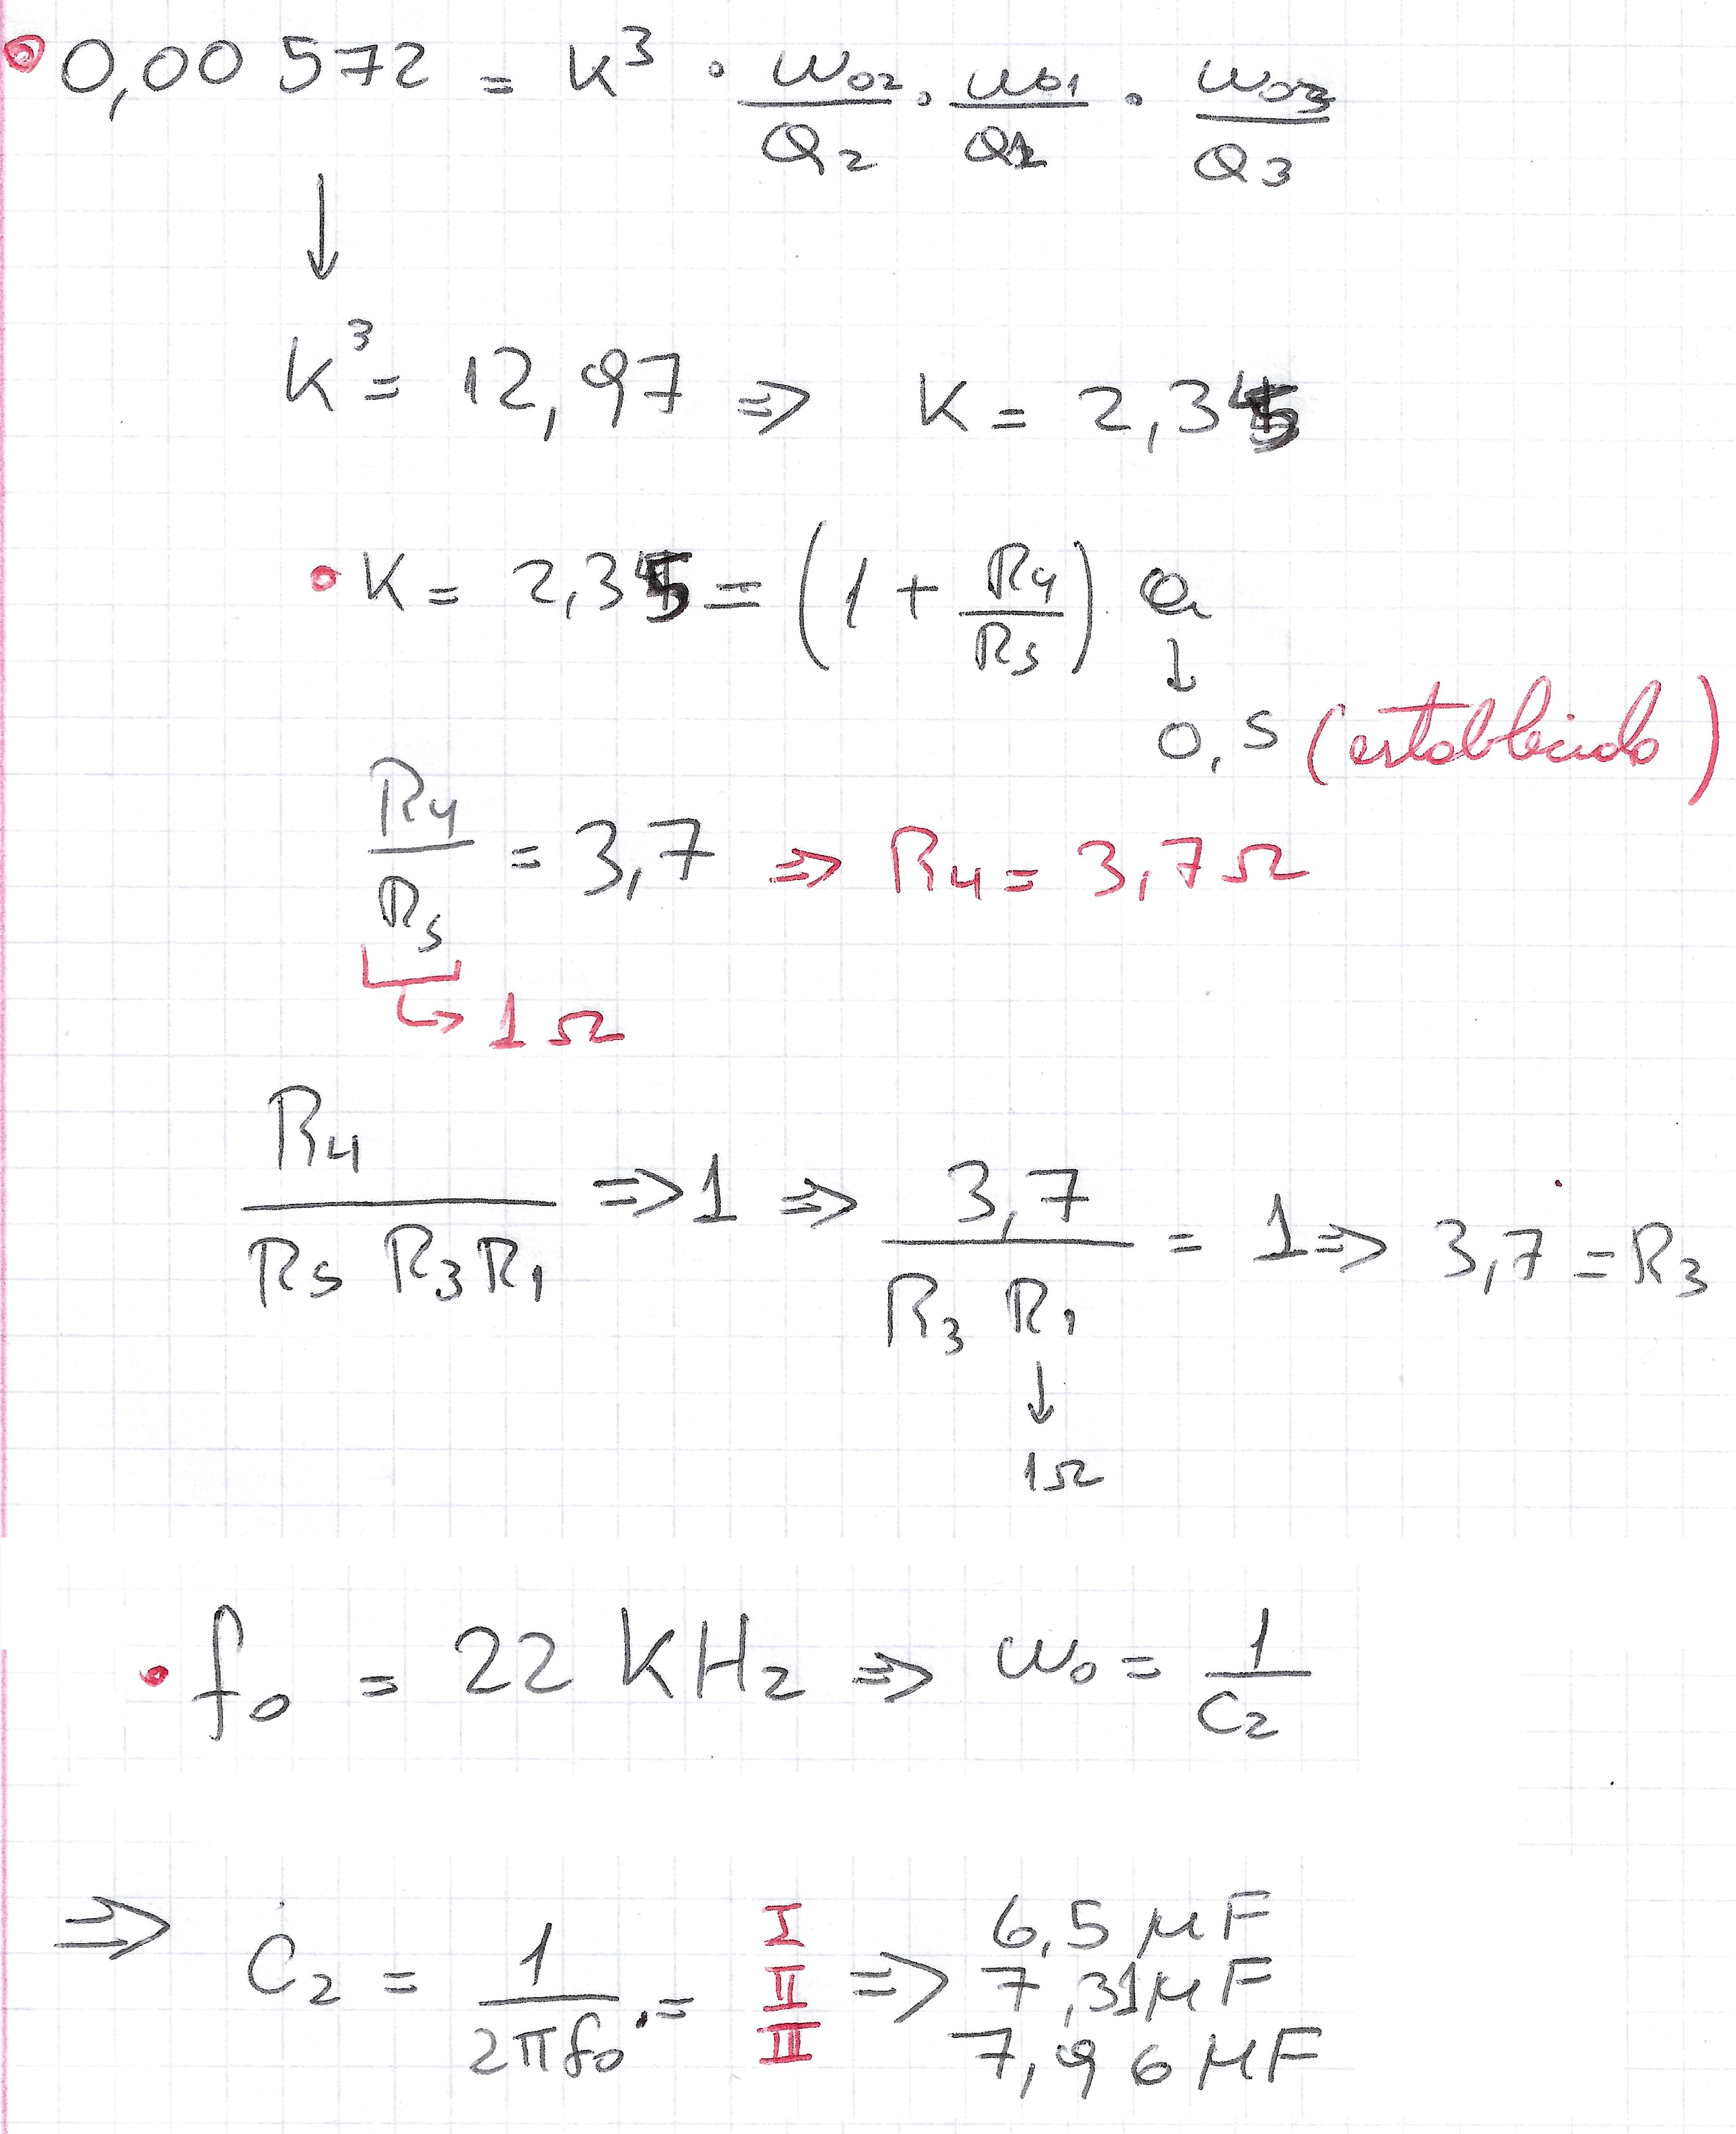 0,00572 = K³ · ω₀₂/Q₂ · ω₀₁/Q₁ · ω₀₃/Q₃
↓
K³ = 12,97 ⇒ K = 2,35
• K = 2,35 = (1 + R₄/R₅) Q
↓
0,5 (establecido)
R₄/R₅ = 3,7 ⇒ R₄ = 3,7 Ω
↳ 1 Ω
R₄/(R₅ R₃ R₁) ⇒ 1 ⇒ 3,7/(R₃ R₁) = 1 ⇒ 3,7 = R₃
↓
1Ω
• f₀ = 22 KHz ⇒ ω₀ = 1/C₂
⇒ C₂ = 1/(2πf₀) = I II III ⇒ 6,5 μF
7,31 μF
7,96 μF